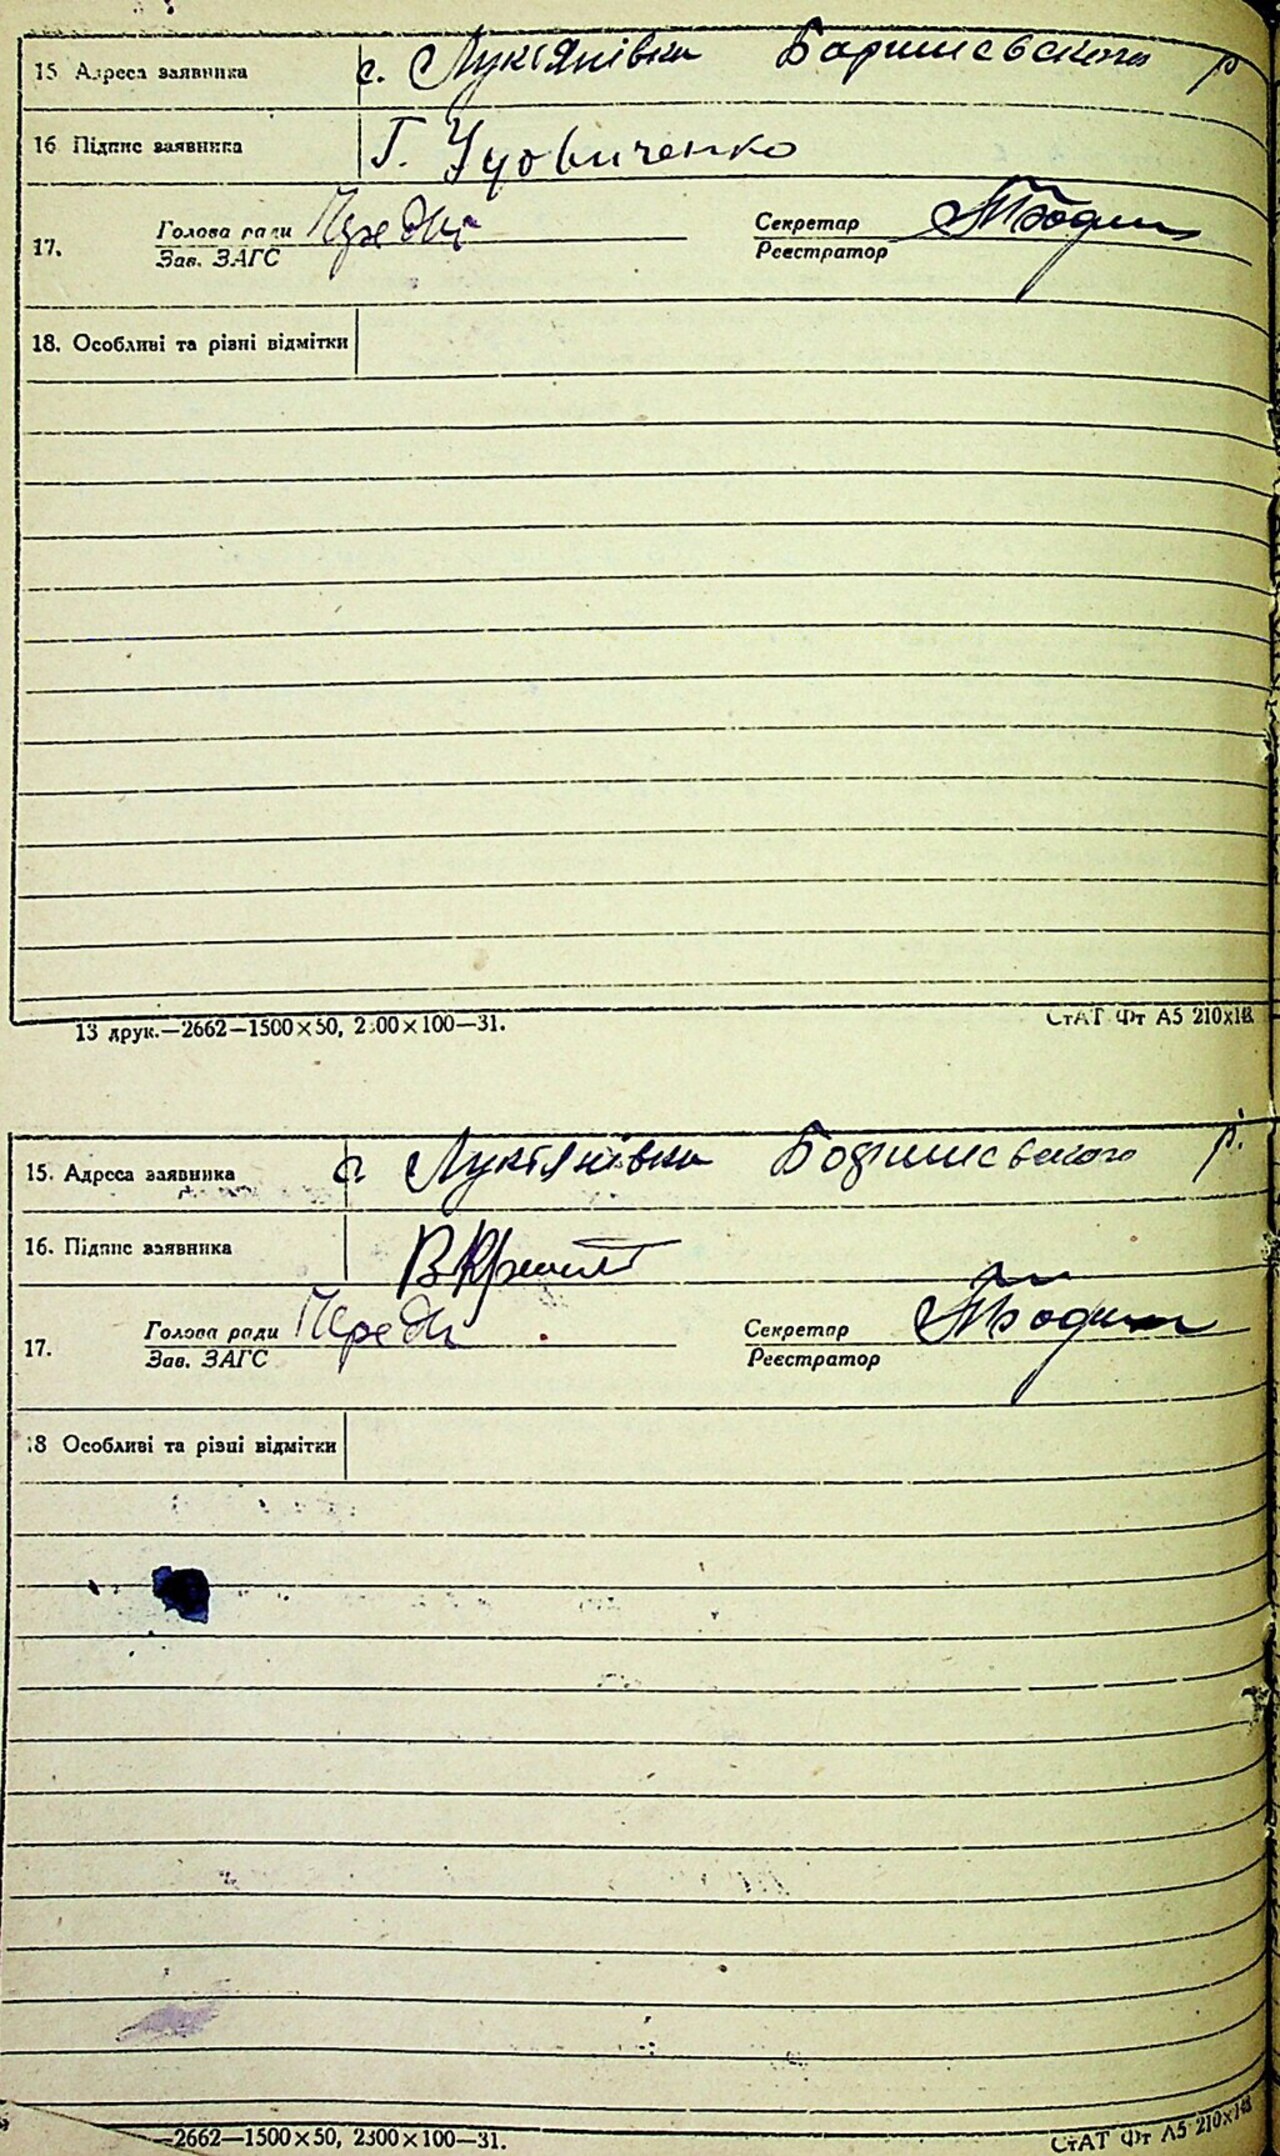 15 Адреса заявника с. Лукіянівка Баришевского р
16 Підпис заявника Г. Удовиченко
17. Голова ради Секретар
Зав. ЗАГС Реєстратор
18. Особливі та різні відмітки
13 друк.—2662—1500×50, 2300×100—31. СтАТ Фт А5 210x148
15. Адреса заявника с. Лукіянівка Баришевского р.
16. Підпис заявника
17. Голова ради Секретар
Зав. ЗАГС Реєстратор
18 Особливі та різні відмітки
—2662—1500×50, 2300×100—31. СтАТ Фт А5 210x148